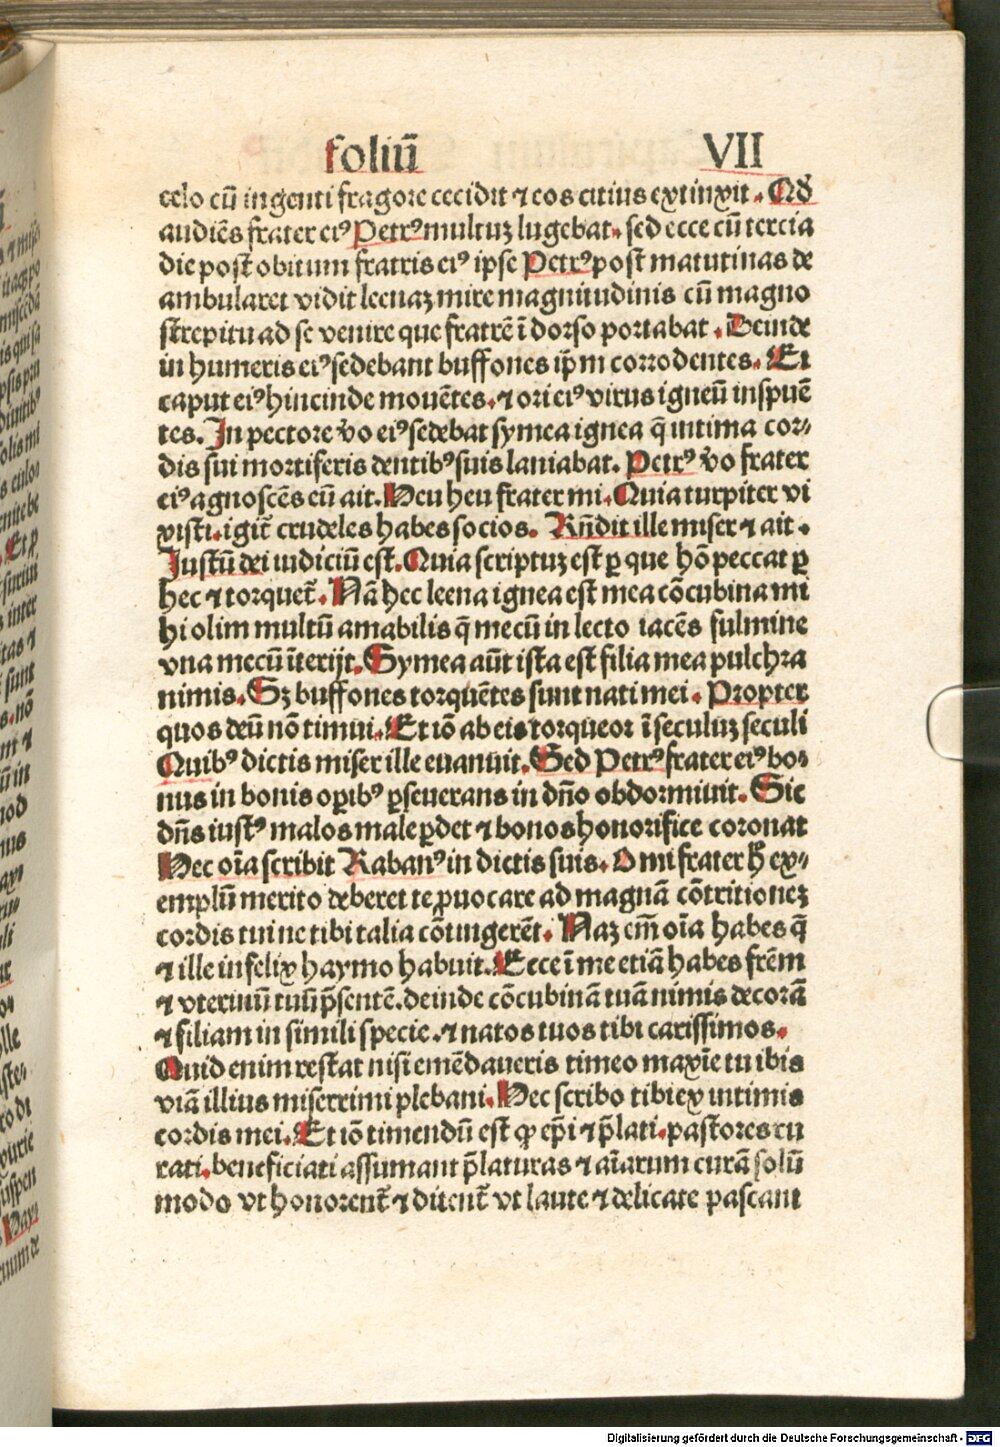 foliū VII
celo cū ingenti fragore cecidit ⁊ eos citius extinxit. Qd̓
audiēs frater eiꝰ Petrꝰ multuꝫ lugebat. sed ecce cū tercia
die post obitum fratris eiꝰ ipse Petrꝰ post matutinas de
ambularet vidit leenaꝫ mire magnitudinis cū magno
strepitu ad se venire que fratrē ī dorso portabat. Deinde
in humeris eiꝰ sedebant buffones ip̄m corrodentes. Et
caput eiꝰ hincinde mouētes. ⁊ ori eiꝰ virus igneū inspuē
tes. In pectore v̓o eiꝰ sedebat symea ignea q̄ intima cor⸗
dis sui mortiferis dentibꝰ suis laniabat. Petrꝰ v̓o frater
eiꝰ agnoscēs eū ait. Heu heu frater mi. Quia turpiter vi
xisti. igit̄ crudeles habes socios. Rn̄dit ille miser ⁊ ait.
Justū dei iudiciū est. Quia scriptuꝫ est ꝑ que hō peccat ꝑ
hec ⁊ torquet̄. Nā hec leena ignea est mea cōcubina mi
hi olim multū amabilis q̄ mecū in lecto iacēs fulmine
vna mecū īterijt. Symea aūt ista est filia mea pulchra
nimis. Sꝫ buffones torquētes sunt nati mei. Propter
quos deū nō timui. Et iō ab eis torqueor ī seculuꝫ seculi
Quibꝰ dictis miser ille euanuit. Sed Petrꝰ frater eiꝰ bo⸗
nus in bonis oꝑibꝰ ꝑseuerans in dn̄o obdormiuit. Sic
dn̄s iustꝰ malos male ꝑdet ⁊ bonos honorifice coronat
Hec oīa scribit Rabanꝰ in dictis suis. O mi frater h̄ ex⸗
emplū merito deberet te ꝓuocare ad magnā cōtritioneꝫ
cordis tui ne tibi talia cōtingerēt. Naꝫ em̄ oīa habes q̄
⁊ ille infelix haymo habuit. Ecce ī me etiā habes frēm
⁊ vterinū tuū p̄sentē. deinde cōcubinā tuā nimis decorā
⁊ filiam in simili specie. ⁊ natos tuos tibi carissimos.
Quid enim restat nisi emēdaueris timeo maxīe tu ibis
viā illius miserrimi plebani. Hec scribo tibi ex intimis
cordis mei. Et iō timendū est ꝙ ep̄i ⁊ p̄lati. pastores cu
rati. beneficiati assumant p̄laturas ⁊ aīarum curā solū
modo vt honorent̄ ⁊ ditent̄ vt laute ⁊ delicate pascant
Digitalisierung gefördert durch die Deutsche Forschungsgemeinschaft - DFG